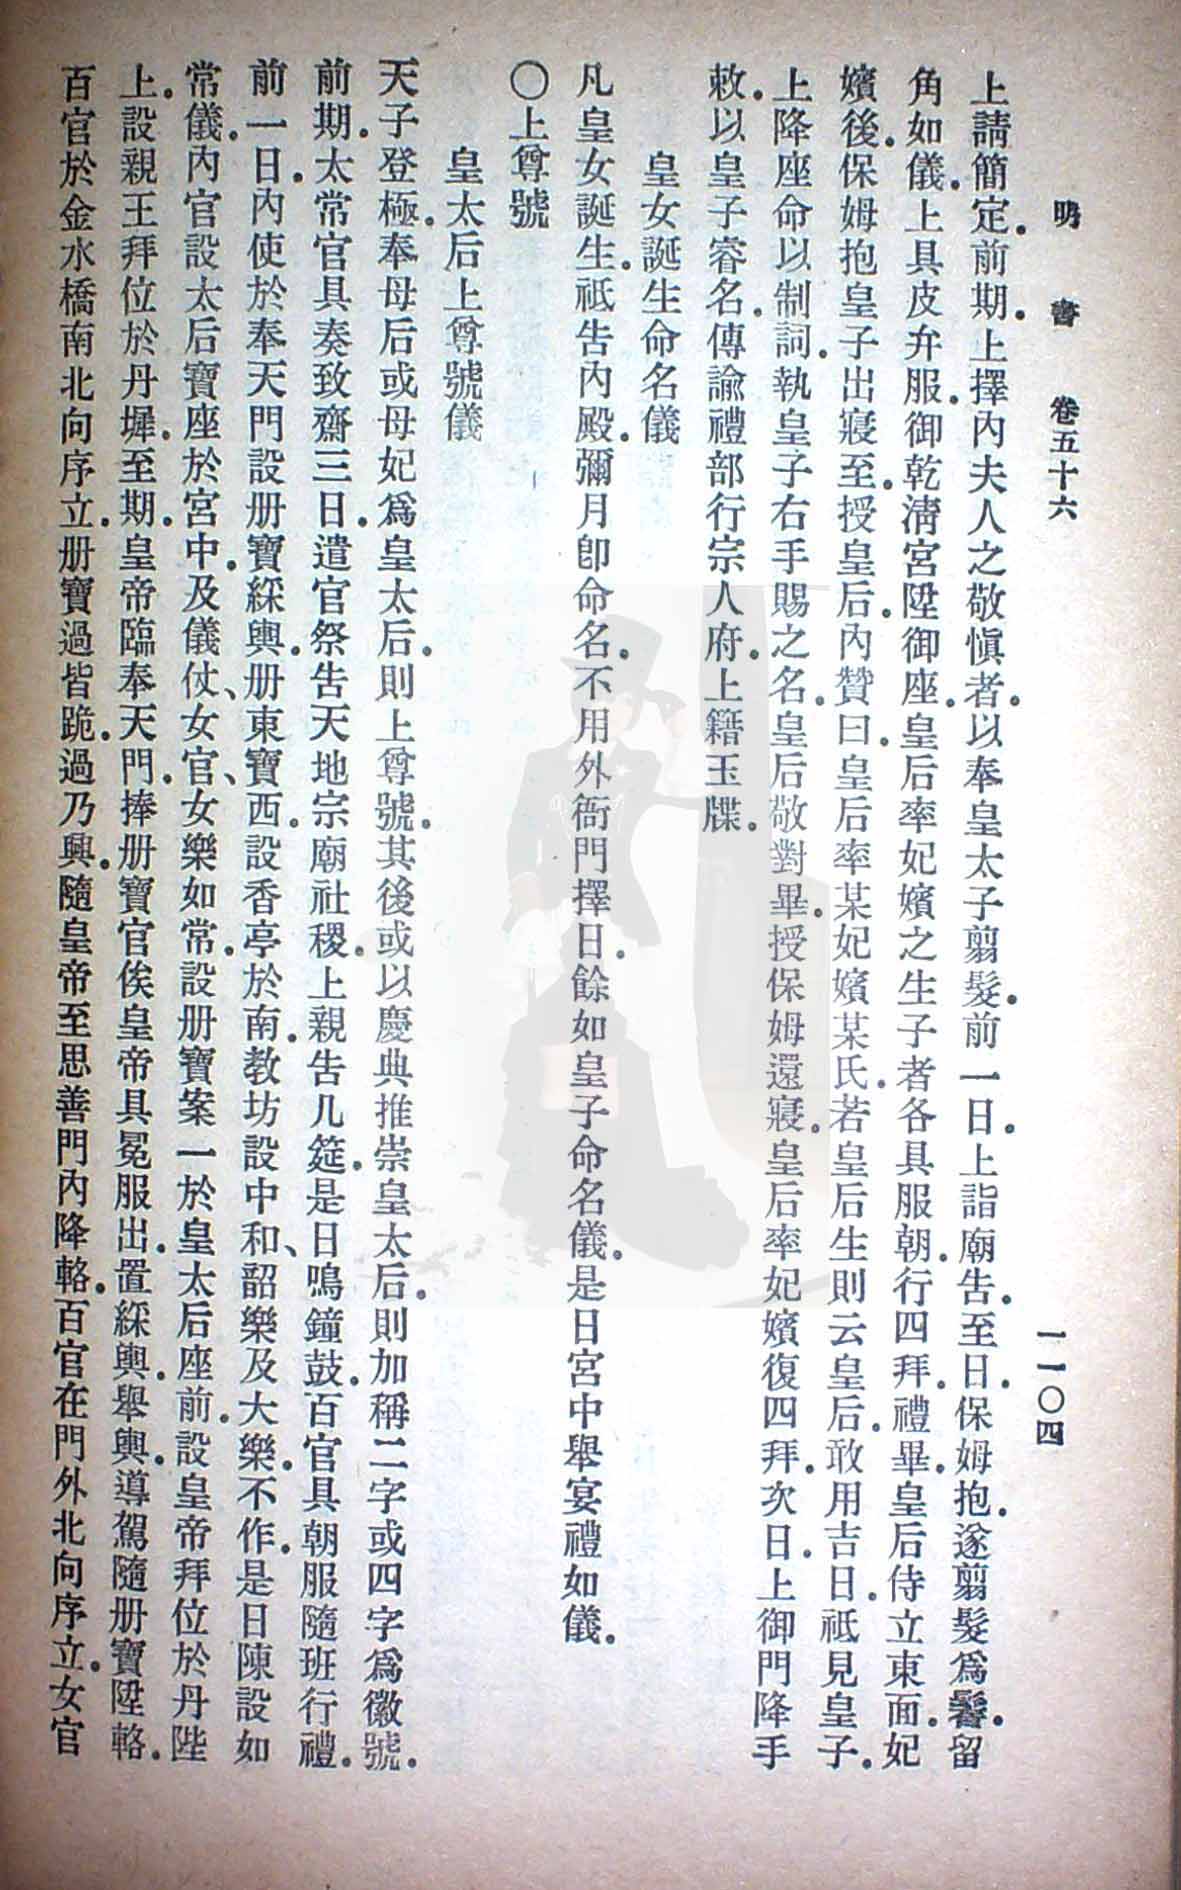 明書 卷五十六 一一〇四
上請簡定。前期。上擇內夫人之敬愼者。以奉皇太子翦髮。前一日。上詣廟告。至日。保姆抱。遂翦髮爲鬌。留
角如儀。上具皮弁服。御乾淸宮。陞御座。皇后率妃嬪之生子者。各具服朝。行四拜。禮畢。皇后侍立東面。妃
嬪後。保姆抱皇子出寢至。授皇后。內贊曰。皇后率某妃嬪某氏。若皇后生則云皇后。敢用吉日。祗見皇子。
上降座。命以制詞。執皇子右手賜之名。皇后敬對畢。授保姆還寢。皇后率妃嬪復四拜。次日。上御門降手
敕。以皇子睿名。傳諭禮部行宗人府。上籍玉牒。
皇女誕生命名儀
凡皇女誕生。祗告內殿。彌月卽命名。不用外衙門擇日。餘如皇子命名儀。是日宮中舉宴禮如儀。
〇上尊號
皇太后上尊號儀
天子登極。奉母后或母妃爲皇太后。則上尊號。其後或以慶典推崇皇太后。則加稱二字或四字爲徽號。
前期。太常官具奏致齋三日。遣官祭告天地宗廟社稷。上親告几筵。是日鳴鐘鼓。百官具朝服隨班行禮。
前一日。內使於奉天門設册寶綵輿。册東寶西。設香亭於南。教坊設中和、韶樂及大樂。不作。是日陳設如
常儀。內官設太后寶座於宮中。及儀仗、女官、女樂如常。設册寶案一於皇太后座前。設皇帝拜位於丹陛
上。設親王拜位於丹墀。至期。皇帝臨奉天門。捧册寶官俟皇帝具冕服出。置綵輿。舉輿。導駕隨册寶陞輅。
百官於金水橋南北向序立。册寶過皆跪。過乃興。隨皇帝至思善門內降輅。百官在門外北向序立。女官